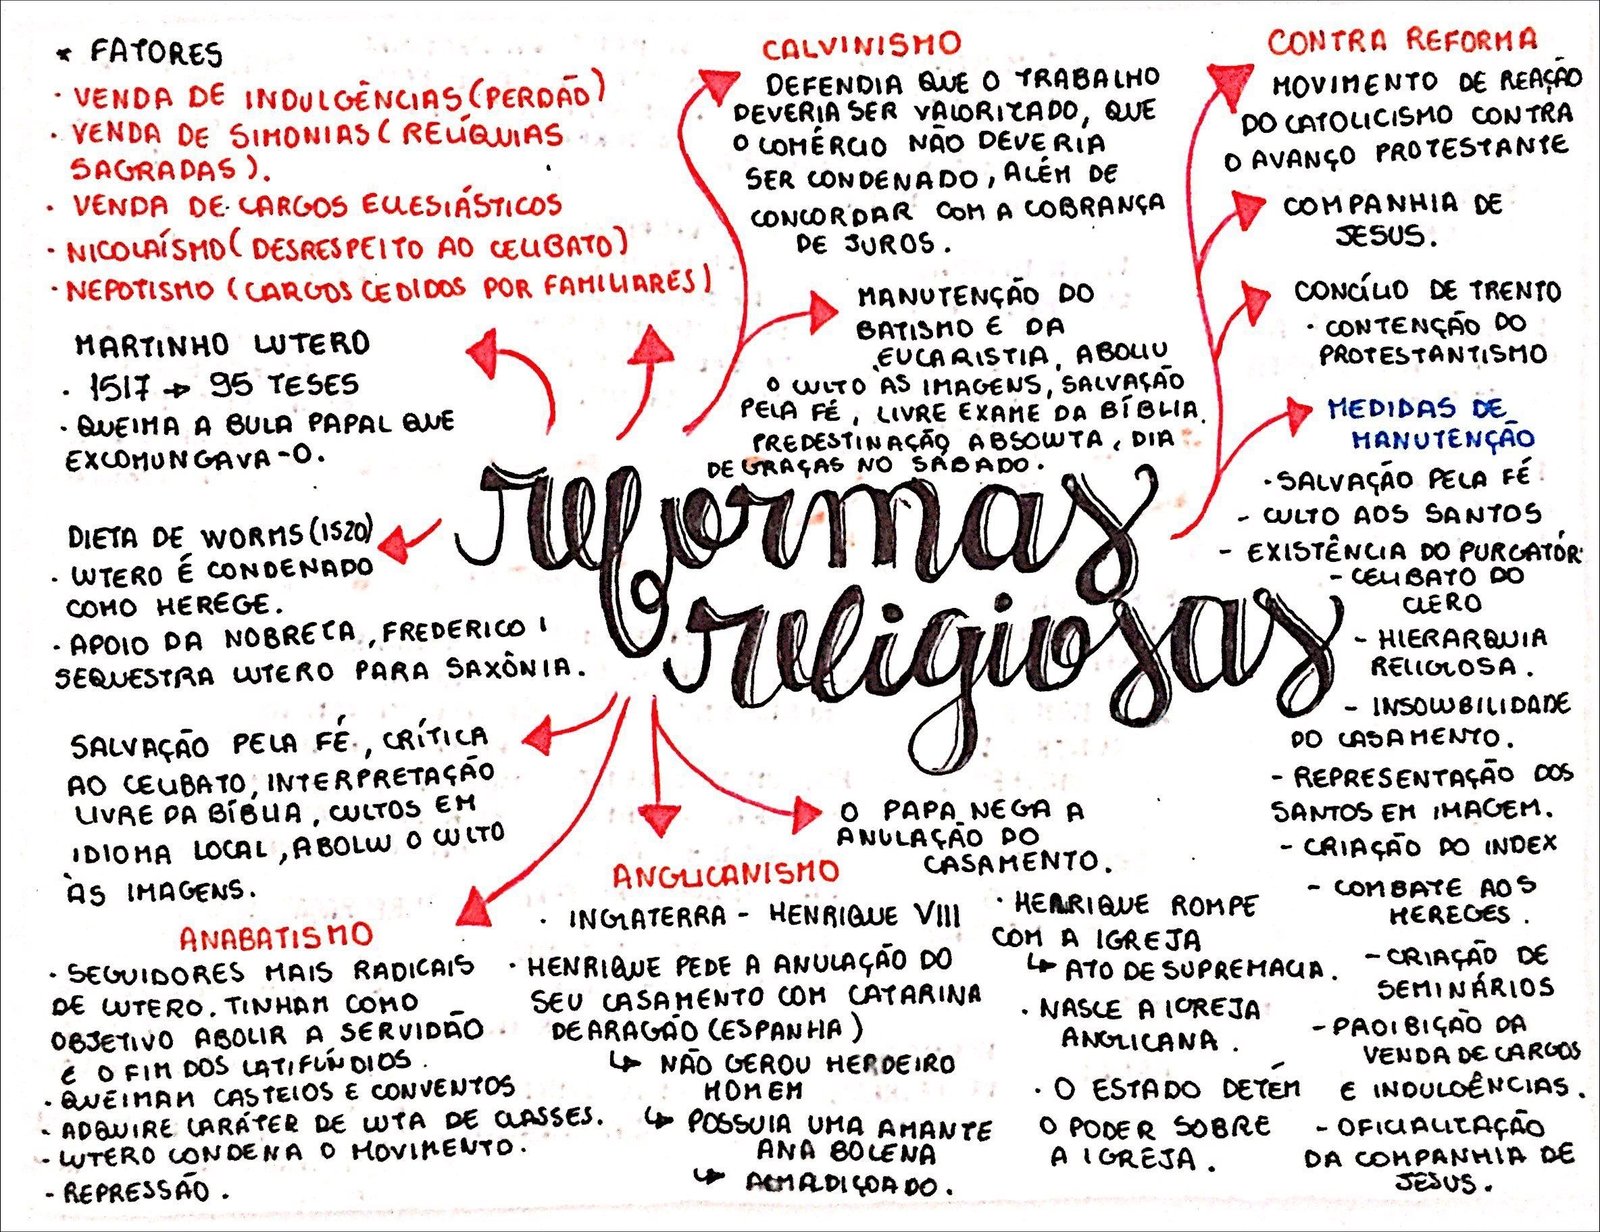 * FATORES
· VENDA DE INDULGÊNCIAS (PERDÃO)
· VENDA DE SIMONIAS (RELÍQUIAS
SAGRADAS).
· VENDA DE CARGOS ECLESIÁSTICOS
· NICOLAÍSMO (DESRESPEITO AO CELIBATO)
· NEPOTISMO (CARGOS CEDIDOS POR FAMILIARES)
MARTINHO LUTERO
· 1517 → 95 TESES
· QUEIMA A BULA PAPAL QUE
EXCOMUNGAVA-O.
DIETA DE WORMS (1520)
· LUTERO É CONDENADO
COMO HEREGE.
· APOIO DA NOBREZA, FREDERICO I
SEQUESTRA LUTERO PARA SAXÔNIA.
SALVAÇÃO PELA FÉ, CRÍTICA
AO CELIBATO, INTERPRETAÇÃO
LIVRE DA BÍBLIA, CULTOS EM
IDIOMA LOCAL, ABOLIU O CULTO
ÀS IMAGENS.
ANABATISMO
· SEGUIDORES MAIS RADICAIS
DE LUTERO. TINHAM COMO
OBJETIVO ABOLIR A SERVIDÃO
E O FIM DOS LATIFÚNDIOS.
· QUEIMAM CASTELOS E CONVENTOS
· ADQUIRE CARÁTER DE LUTA DE CLASSES.
· LUTERO CONDENA O MOVIMENTO.
- REPRESSÃO.
CALVINISMO
DEFENDIA QUE O TRABALHO
DEVERIA SER VALORIZADO, QUE
O COMÉRCIO NÃO DEVERIA
SER CONDENADO, ALÉM DE
CONCORDAR COM A COBRANÇA
DE JUROS.
MANUTENÇÃO DO
BATISMO E DA
EUCARISTIA, ABOLIU
O CULTO AS IMAGENS, SALVAÇÃO
PELA FÉ, LIVRE EXAME DA BÍBLIA.
PREDESTINAÇÃO ABSOLUTA, DIA
DE GRAÇAS NO SÁBADO.
reformas
religiosas
ANGLICANISMO
· INGLATERRA - HENRIQUE VIII
· HENRIQUE PEDE A ANULAÇÃO DO
SEU CASAMENTO COM CATARINA
DE ARAGÃO (ESPANHA)
↳ NÃO GEROU HERDEIRO
HOMEM
↳ POSSUIA UMA AMANTE
ANA BOLENA
↳ AMALDIÇOADO.
O PAPA NEGA A
ANULAÇÃO DO
CASAMENTO.
· HENRIQUE ROMPE
COM A IGREJA
↳ ATO DE SUPREMACIA.
· NASCE A IGREJA
ANGLICANA.
· O ESTADO DETÉM
O PODER SOBRE
A IGREJA.
CONTRA REFORMA
MOVIMENTO DE REAÇÃO
DO CATOLICISMO CONTRA
O AVANÇO PROTESTANTE
COMPANHIA DE
JESUS.
CONCÍLIO DE TRENTO
· CONTENÇÃO DO
PROTESTANTISMO
MEDIDAS DE
MANUTENÇÃO
· SALVAÇÃO PELA FÉ
- CULTO AOS SANTOS
- EXISTÊNCIA DO PURGATÓR
- CELIBATO DO
CLERO
- HIERARQUIA
RELIGIOSA.
- INSOLUBILIDADE
DO CASAMENTO.
- REPRESENTAÇÃO DOS
SANTOS EM IMAGEM.
- CRIAÇÃO DO INDEX
- COMBATE AOS
HEREGES.
- CRIAÇÃO DE
SEMINÁRIOS
- PROIBIÇÃO DA
VENDA DE CARGOS
E INDULGÊNCIAS.
- OFICIALIZAÇÃO
DA COMPANHIA DE
JESUS.